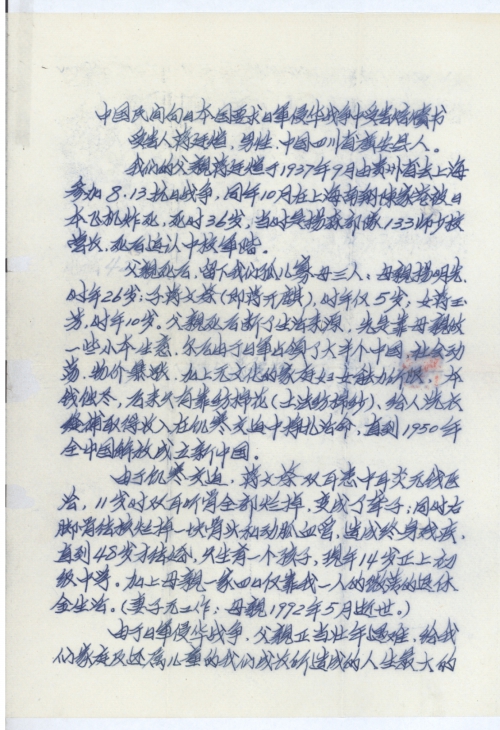 中国民间向日本国要求日军侵华战争中受害赔偿书
受害人蒋廷煊，男性，中国四川省人。
我们的父亲蒋廷煊于1937年9月由贵州省去上海
参加8.13抗日战争，同年10月在上海南翔陈家巷被日
本飞机炸死，死时36岁，当时是杨森部队133师少校
营长，死后追认中校军阶。
父亲死后，留下我们孤儿寡母三人：母亲杨明光，
时年26岁；子蒋文燦（即蒋开麒），时年仅5岁；女蒋玉
芳，时年10岁。父亲死后断了生活来源，先是靠母亲做
一些小本生意，尔后由于日军占领了大半个中国，社会动
荡，物价暴涨，加上无文化的家庭妇女能力，本
钱蚀尽，后来只有靠纺棉花（土法纺棉纱），给人洗衣
取得收入在饥寒交迫中挣扎活命，直到1950年
全中国解放成立新中国。
由于饥寒交迫，蒋文燦双耳患中耳炎无钱医
治，11岁时双耳听骨全部烂掉，变成了聋子；同时右
脚骨结核烂掉一块骨头和动脉血管，造成终身残疾，
直到48岁才结婚，只生育一个孩子，现年14岁正上初
级中学。加上母亲一家四口仅靠我一人的微薄的退休
金生活。（妻子无工作；母亲1992年5月逝世。）
由于日军侵华战争，父亲正当壮年遇难，给我
们家庭及还属儿童的我们成放所造成的人生最大的